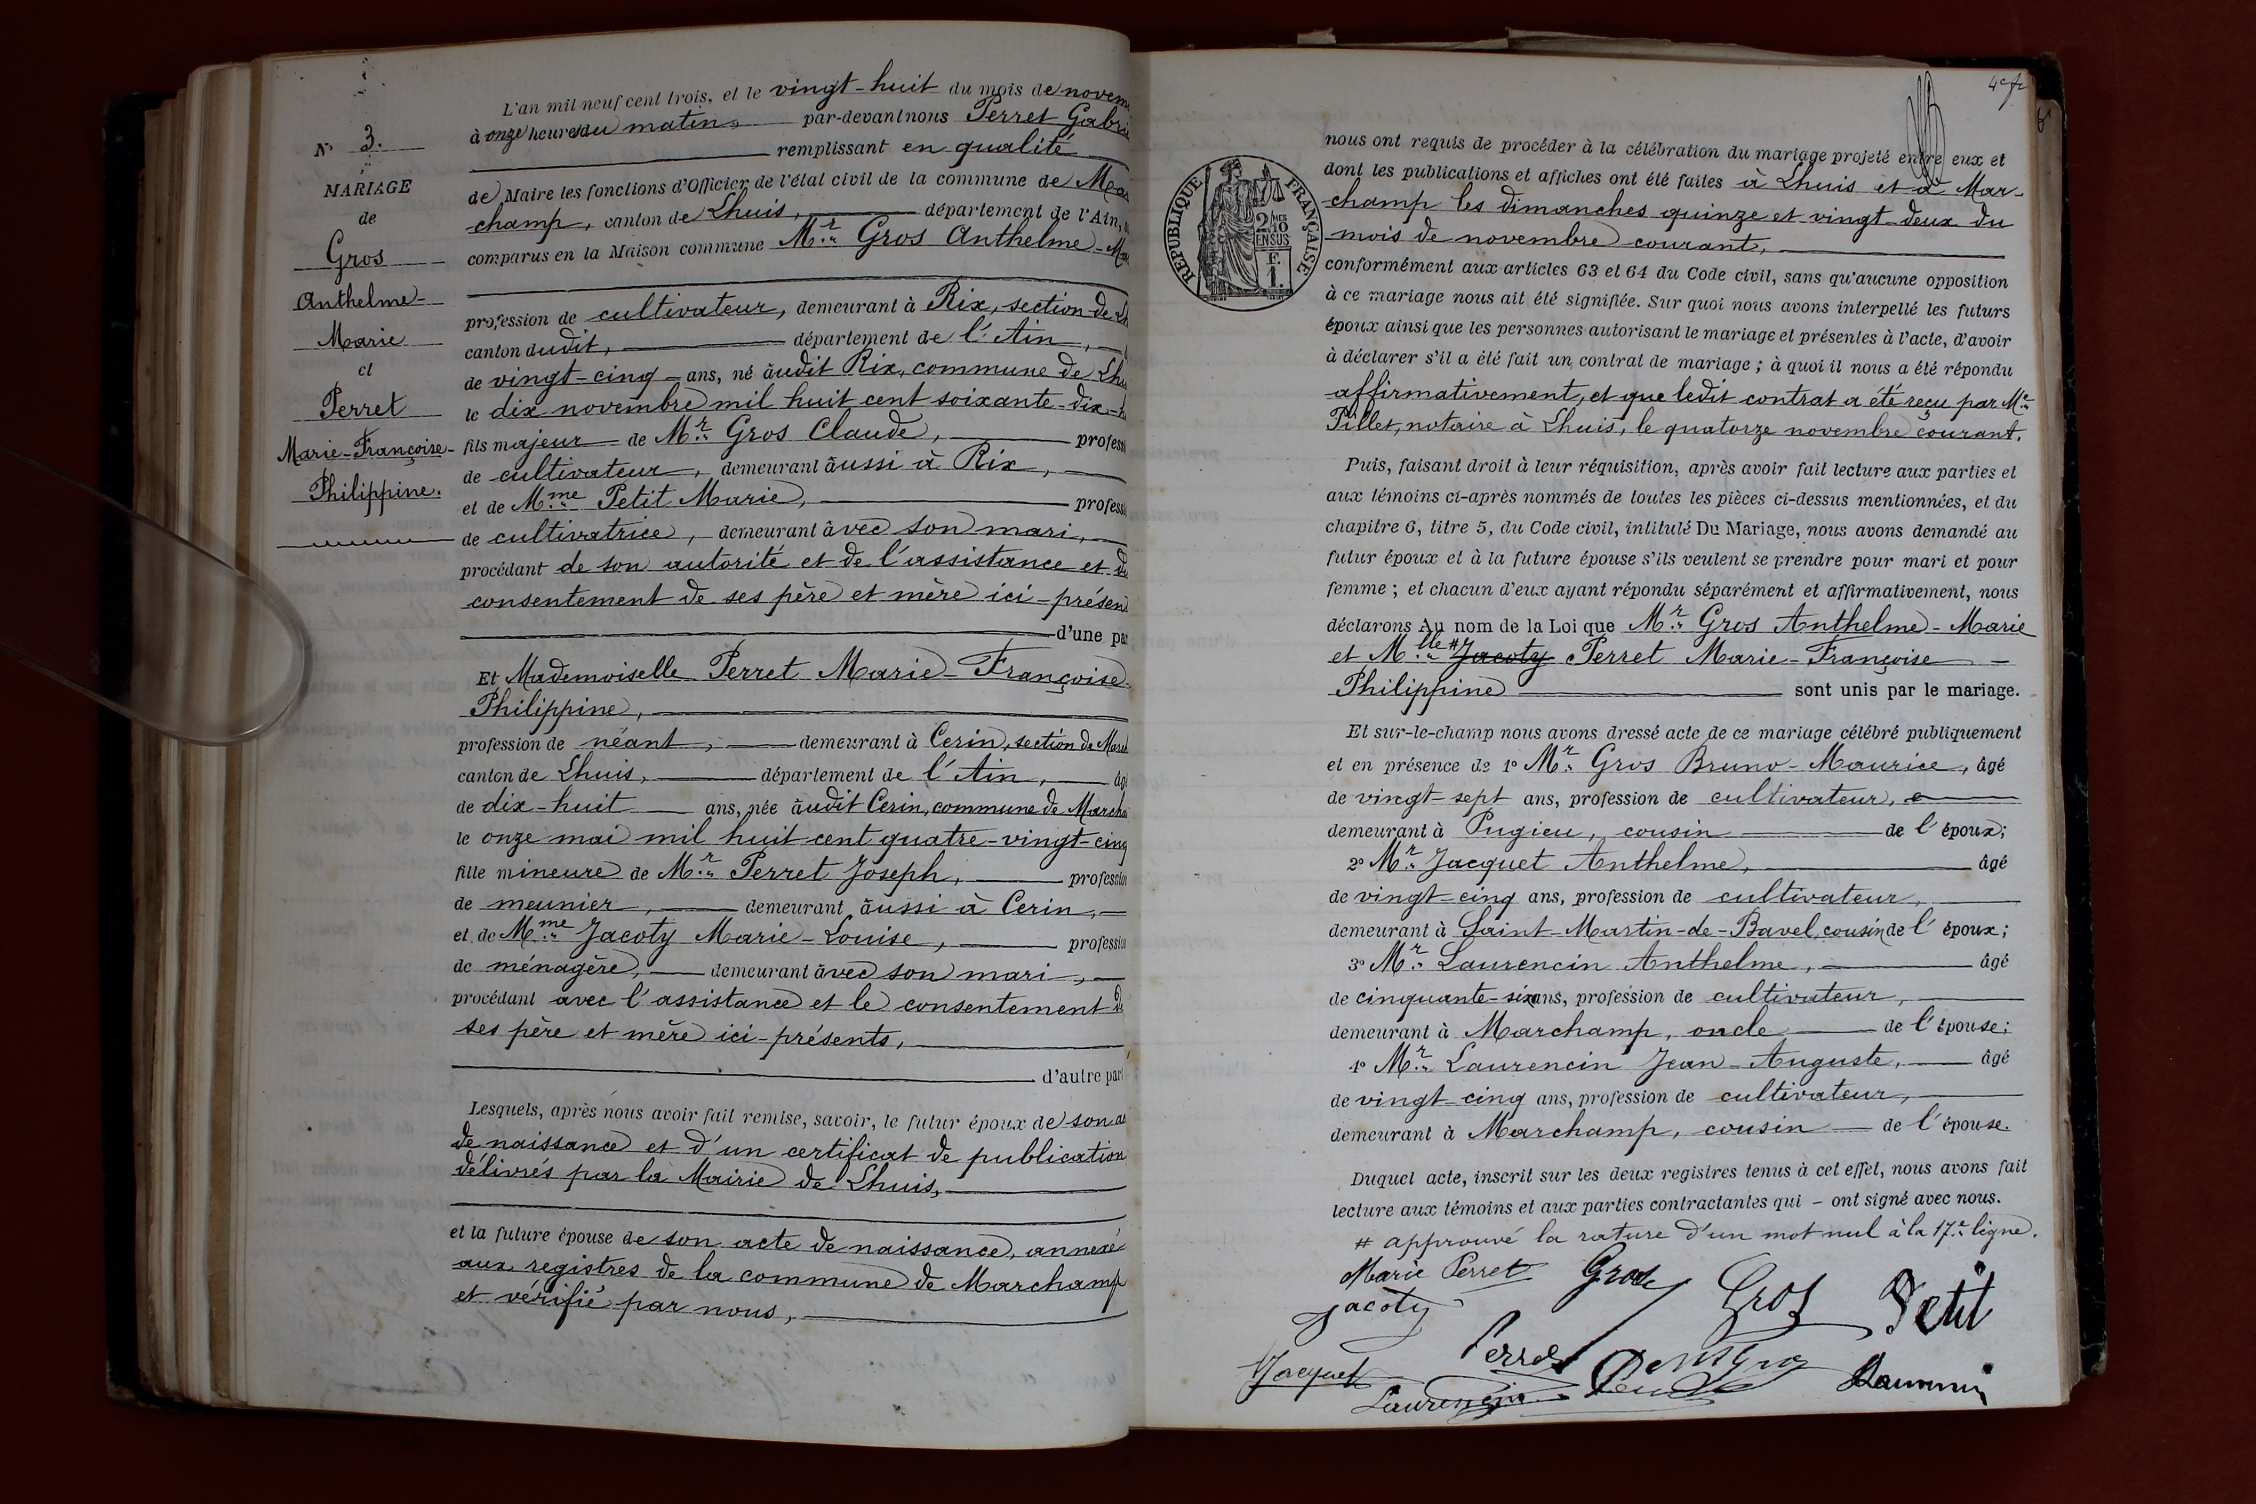 N° 3.
MARIAGE
de
Gros
Anthelme-
Marie
et
Perret
Marie-Françoise-
Philippine.
L'an mil neuf cent trois, et le vingt-huit du mois de novem
à onze heures du matin, par-devant nous Perret Gabri
remplissant en qualité
de Maire les fonctions d'Officier de l'état civil de la commune de Mar
champ, canton de Lhuis, département de l'Ain,
comparus en la Maison commune Mr Gros Anthelme-Ma
profession de cultivateur, demeurant à Rix, section de Lh
canton dudit, département de l'Ain,
de vingt-cinq ans, né audit Rix, commune de Lhu
le dix novembre mil huit cent soixante-dix-h
fils majeur de Mr Gros Claude, professi
de cultivateur, demeurant aussi à Rix,
et de Mme Petit Marie, professi
de cultivatrice, demeurant avec son mari,
procédant de son autorité et de l'assistance et du
consentement de ses père et mère ici-présen
d'une par
Et Mademoiselle Perret Marie-Françoise-
Philippine,
profession de néant, demeurant à Cerin, section de March
canton de Lhuis, département de l'Ain, âgé
de dix-huit ans, née audit Cerin, commune de Marcha
le onze mai mil huit cent quatre-vingt-cinq
fille mineure de Mr Perret Joseph, profession
de meunier, demeurant aussi à Cerin,
et de Mme Jacoty Marie-Louise, profession
de ménagère, demeurant avec son mari,
procédant avec l'assistance et le consentement de
ses père et mère ici-présents,
d'autre part
Lesquels, après nous avoir fait remise, savoir, le futur époux de son a
de naissance et d'un certificat de publication
délivrés par la Mairie de Lhuis,
et la future épouse de son acte de naissance, annexé
aux registres de la commune de Marchamp
et vérifié par nous,
RÉPUBLIQUE FRANÇAISE
2/10
EN SUS
F.
1.
nous ont requis de procéder à la célébration du mariage projeté entre eux et
dont les publications et affiches ont été faites à Lhuis et à Mar-
champ les dimanches quinze et vingt-deux du
mois de novembre courant,
conformément aux articles 63 et 64 du Code civil, sans qu'aucune opposition
à ce mariage nous ait été signifiée. Sur quoi nous avons interpellé les futurs
époux ainsi que les personnes autorisant le mariage et présentes à l'acte, d'avoir
à déclarer s'il a été fait un contrat de mariage ; à quoi il nous a été répondu
affirmativement, et que ledit contrat a été reçu par Me
Pillet, notaire à Lhuis, le quatorze novembre courant.
Puis, faisant droit à leur réquisition, après avoir fait lecture aux parties et
aux témoins ci-après nommés de toutes les pièces ci-dessus mentionnées, et du
chapitre 6, titre 5, du Code civil, intitulé Du Mariage, nous avons demandé au
futur époux et à la future épouse s'ils veulent se prendre pour mari et pour
femme ; et chacun d'eux ayant répondu séparément et affirmativement, nous
déclarons Au nom de la Loi que Mr Gros Anthelme-Marie
et Mlle # Jacoty Perret Marie-Françoise
Philippine sont unis par le mariage.
Et sur-le-champ nous avons dressé acte de ce mariage célébré publiquement
et en présence de 1° Mr Gros Bruno-Maurice, âgé
de vingt-sept ans, profession de cultivateur,
demeurant à Pugieu, cousin de l'époux;
2° Mr Jacquet Anthelme, âgé
de vingt-cinq ans, profession de cultivateur,
demeurant à Saint-Martin-de-Bavel, cousin de l'époux;
3° Mr Laurencin Anthelme, âgé
de cinquante-six ans, profession de cultivateur,
demeurant à Marchamp, oncle de l'épouse;
4° Mr Laurencin Jean-Auguste, âgé
de vingt-cinq ans, profession de cultivateur,
demeurant à Marchamp, cousin de l'épouse.
Duquel acte, inscrit sur les deux registres tenus à cet effet, nous avons fait
lecture aux témoins et aux parties contractantes qui - ont signé avec nous.
# approuvé la rature d'un mot nul à la 17e ligne.
Marie Perret Gros Gros Petit
Jacoty
Perret
Jacquet Laurencin